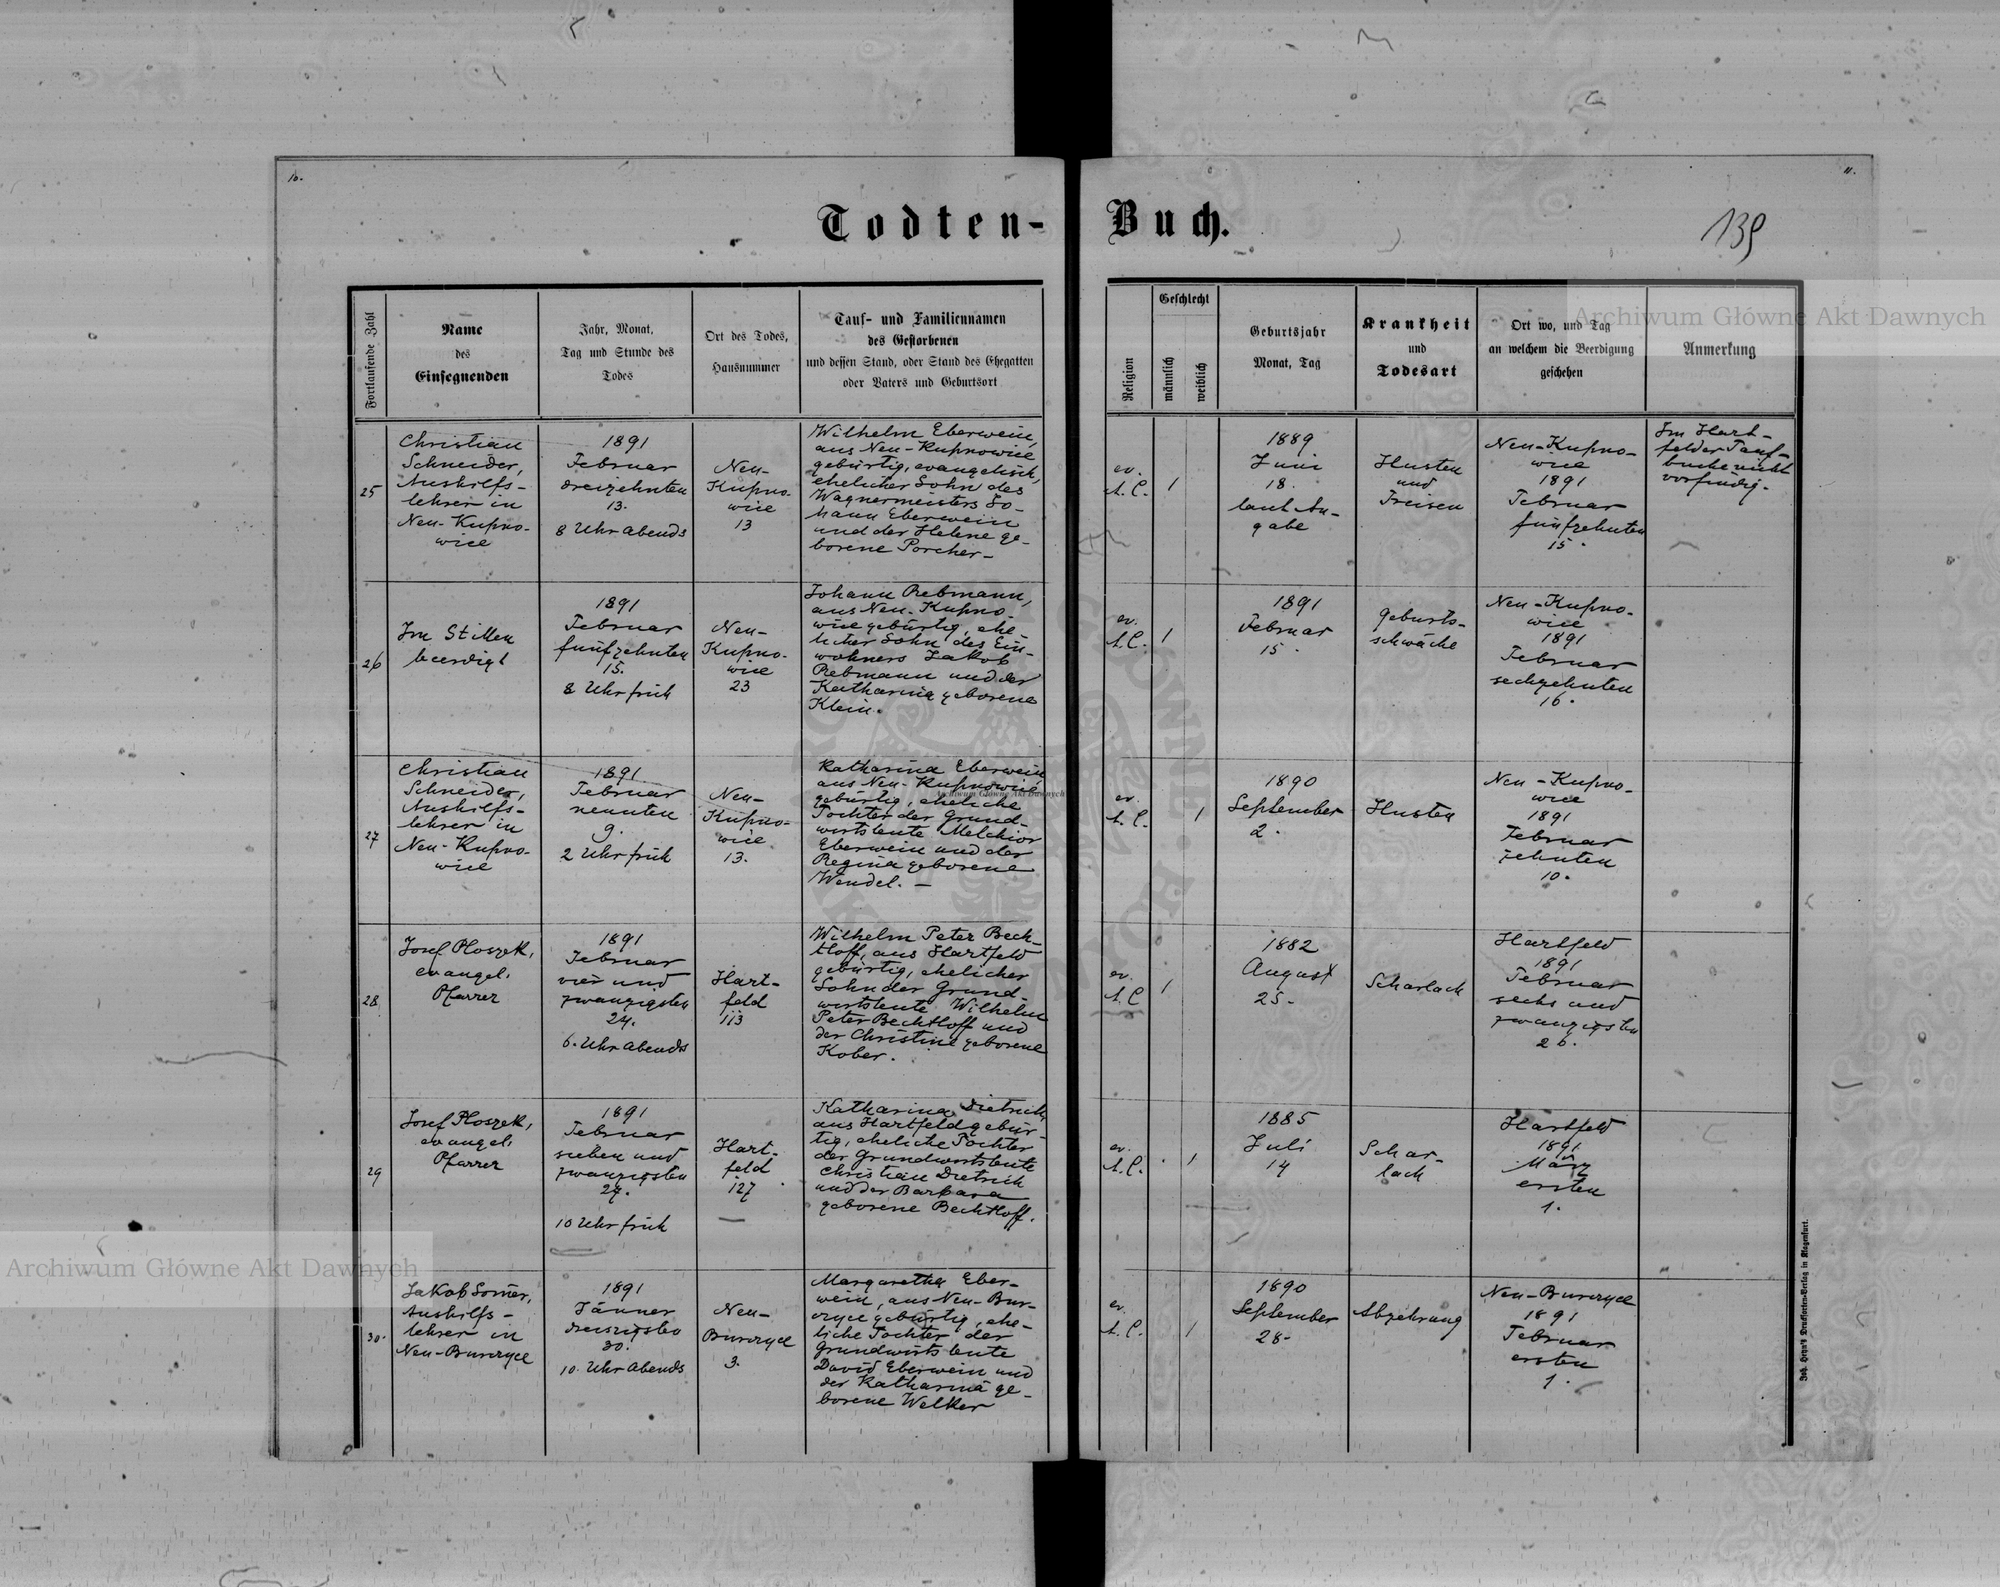 10.
11.
Todten-Buch.
139
Fortlaufende Zahl
Name
des
Einsegnenden
Jahr, Monat,
Tag und Stunde des
Todes
Ort des Todes,
Hausnummer
Tauf- und Familiennamen
des Gestorbenen
und dessen Stand, oder Stand des Ehegatten
oder Vaters und Geburtsort
Religion
Geschlecht
männlich
weiblich
Geburtsjahr
Monat, Tag
Krankheit
und
Todesart
Ort wo, und Tag
an welchem die Beerdigung
geschehen
Anmerkung
25
Christian
Schneider,
Aushilfs-
lehrer in
Neu-Kupno-
wice
1891
Februar
dreizehnten
13.
8 Uhr Abends
Neu-
Kupno-
wice
13
Wilhelm Eberwein,
aus Neu-Kupnowice
gebürtig, evangelisch,
ehelicher Sohn des
Wagnermeisters Jo-
hann Eberwein
und der Helene ge-
borene Porcher-
ev.
A.C.
1
1889
Juni
18.
laut An-
gabe
Husten
und
Freisen
Neu-Kupno-
wice
1891
Februar
fünfzehnten
15.
Im Hart-
felder Tauf-
buche nicht
vorfindig.
26
Im Stillen
beerdigt
1891
Februar
fünfzehnten
15.
8 Uhr früh
Neu-
Kupno-
wice
23
Johann Rebmann,
aus Neu-Kupno
wice gebürtig, ehe-
licher Sohn des Ein-
wohners Jakob
Rebmann und der
Katharina geborene
Klein.
ev.
A.C.
1
1891
Februar
15.
Geburts-
schwäche
Neu-Kupno-
wice
1891
Februar
sechzehnten
16.
27
Christian
Schneider,
Aushilfs-
lehrer in
Neu-Kupno-
wice
1891
Februar
neunten
9.
2 Uhr früh
Neu-
Kupno-
wice
13.
Katharina Eberwein
aus Neu-Kupnowice
gebürtig, eheliche
Tochter der Grund-
wirtsleute Melchior
Eberwein und der
Regina geborene
Wendel. -
ev.
A.C.
1
1890
September
2.
Husten
Neu-Kupno-
wice
1891
Februar
zehnten
10.
28
Josef Ploszek,
evangel.
Pfarrer
1891
Februar
vier und
zwanzigsten
24.
6. Uhr Abends
Hart-
feld
113
Wilhelm Peter Bech-
tloff, aus Hartfeld
gebürtig, ehelicher
Sohn der Grund-
wirtsleute Wilhelm
Peter Bechtloff und
der Christine geborene
Kober.
ev.
A.C
1
1882
August
25-
Scharlach
Hartfeld
1891
Februar
sechs und
zwanzigsten
26.
29
Josef Ploszek,
evangel.
Pfarrer
1891
Februar
sieben und
zwanzigsten
27.
10 Uhr früh
Hart-
feld
127
Katharina Dietrich,
aus Hartfeld gebür-
tig, eheliche Tochter
der Grundwirtsleute
Christian Dietrich
und der Barbara
geborene Bechtloff.
ev.
A.C.
1
1885
Juli
14
Schar-
lach
Hartfeld
1891
März
ersten
1.
30.
Jakob Somer,
Aushilfs-
lehrer in
Neu-Burczyce
1891
Jänner
dreizigsten
30.
10. Uhr Abends
Neu-
Burczyce
3.
Margaretha Eber-
wein, aus Neu-Bur-
czyce gebürtig, ehe-
liche Tochter der
Grundwirtsleute
David Eberwein und
der Katharina ge-
borene Welker
ev.
A.C.
1
1890
September
28-
Abzehrung
Neu-Burczyce
1891
Februar
ersten
1.
Joh. Heyn's Drucksorten-Verlag in Klagenfurt.
Archiwum Główne Akt Dawnych
Archiwum Główne Akt Dawnych
Archiwum Główne Akt Dawnych